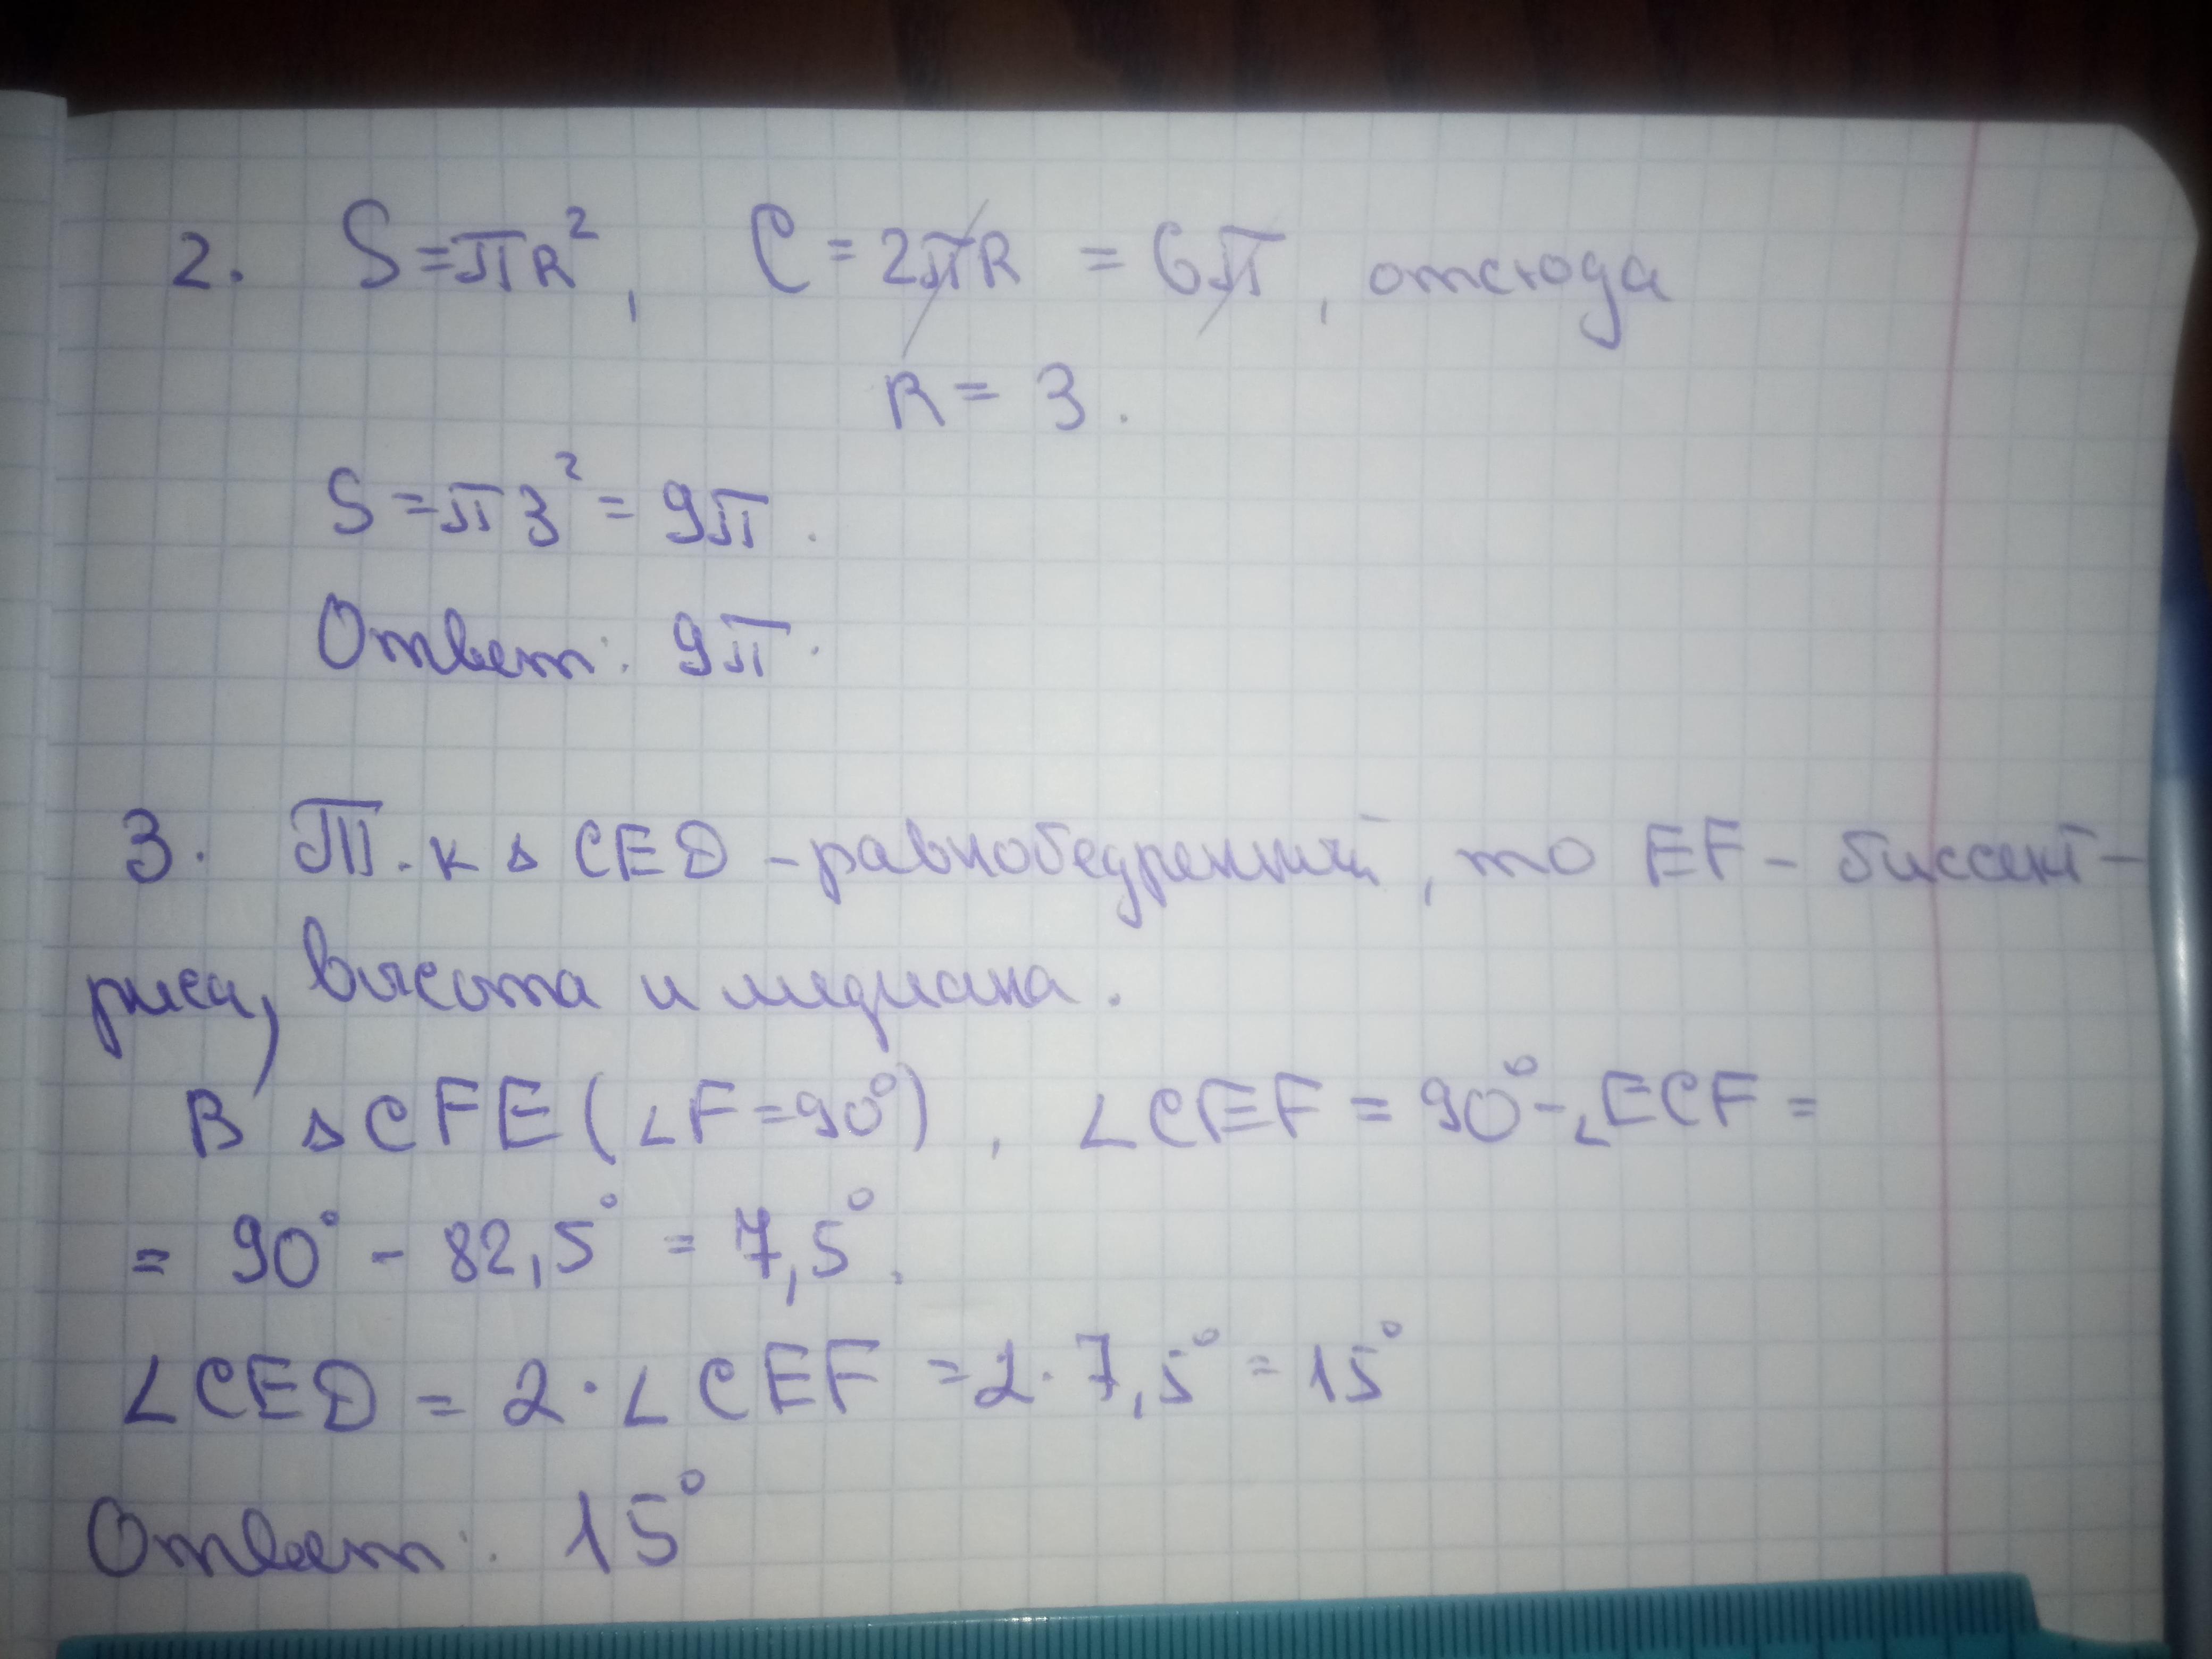 2. S=πR², C=2πR = 6π, отсюда
R = 3.
S=π3²=9π.
Ответ: 9π.
3. Т.к △CED - равнобедренный, то EF - биссект-
риса, высота и медиана.
В △CFE(∠F=90°), ∠CEF = 90°-∠ECF =
= 90° - 82,5° = 7,5°.
∠CED = 2·∠CEF =2·7,5° = 15°
Ответ: 15°